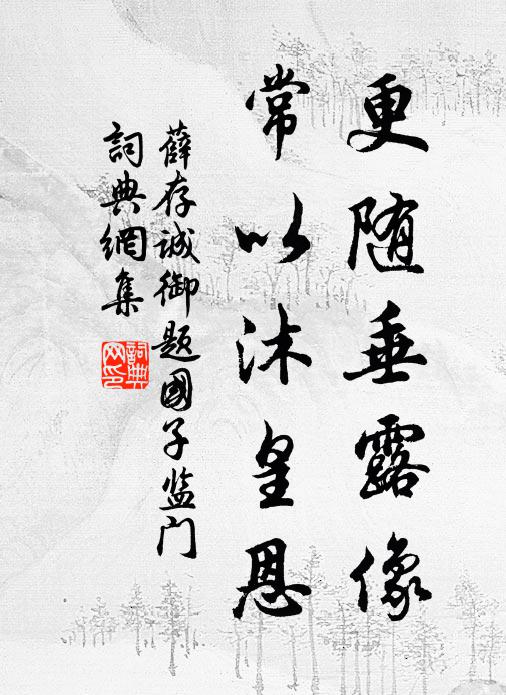 更随垂露像
常以沐皇恩
薛存诚御题国子监门
词典網集
詞典
网印